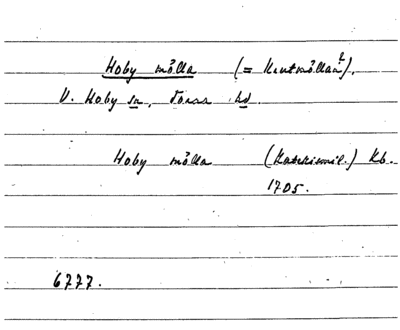 Hoby mölla (= Krutmöllan?).
V. Hoby sn, Torna hd.
Hoby mölla (Katekismil.) Kb.
1705.
6777.